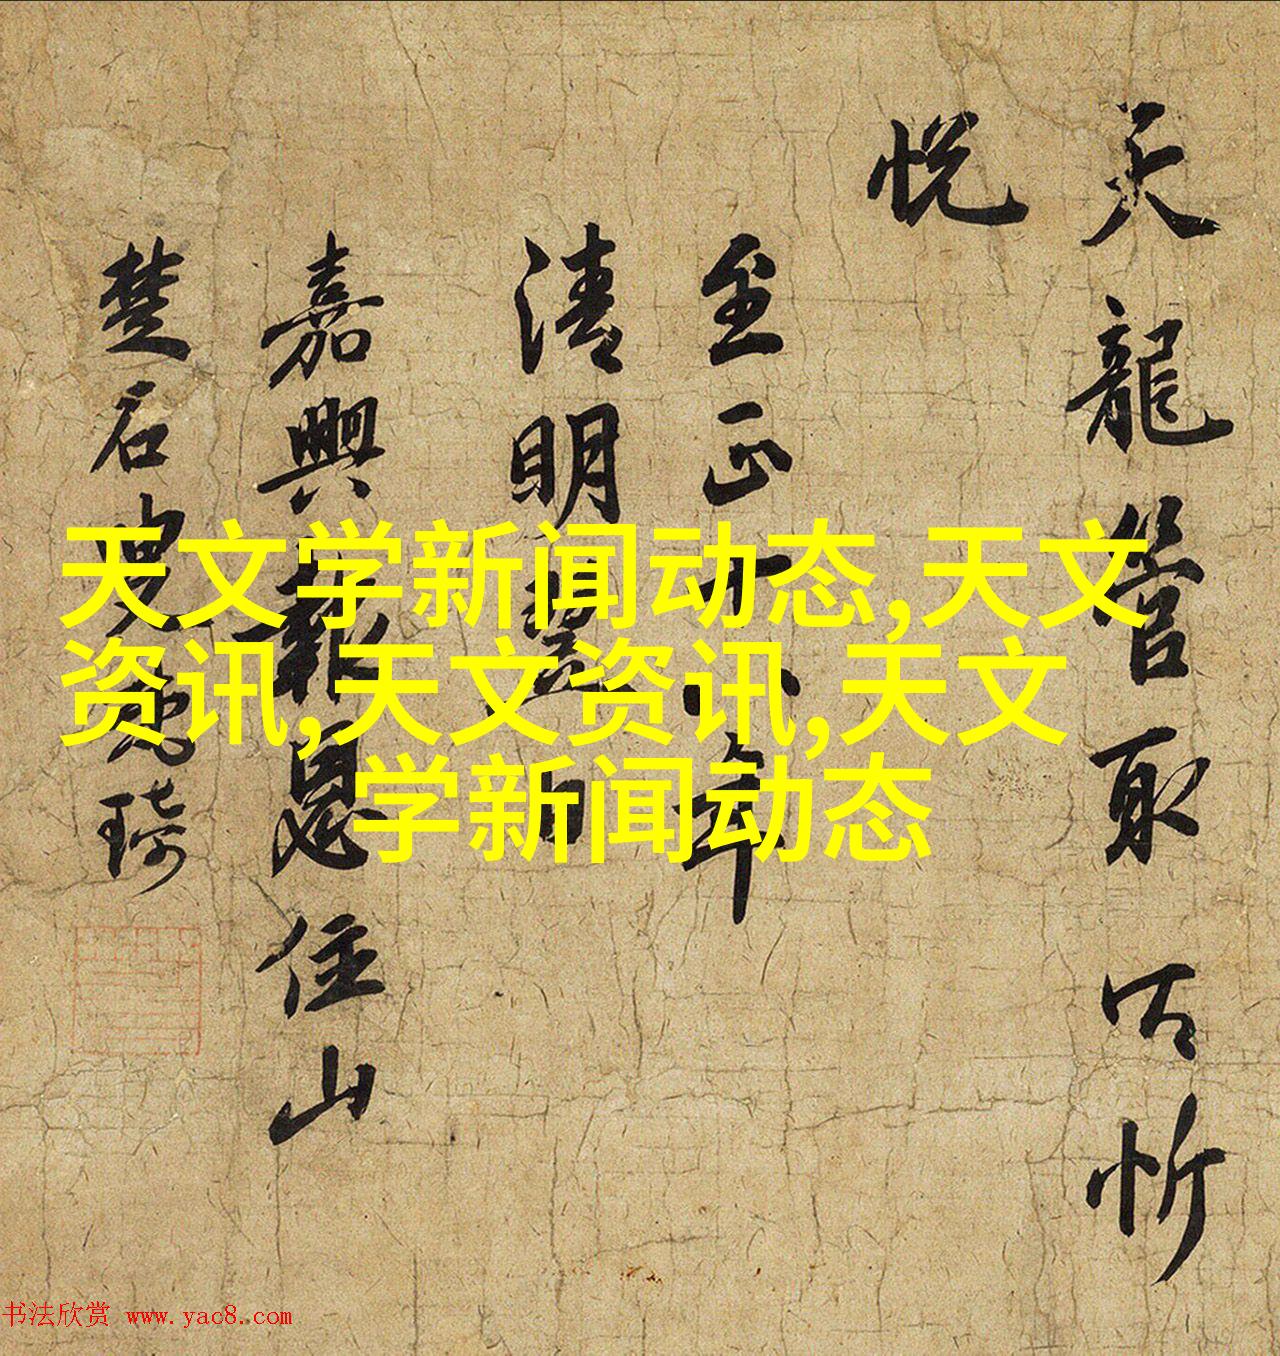 天龍管取以忻
悦
至正年
清明日
嘉興報恩住山
楚石叟梵琦
天文学新闻动态,天文
资讯,天文资讯,天文
学新闻动态
书法欣赏 www.yac8.com